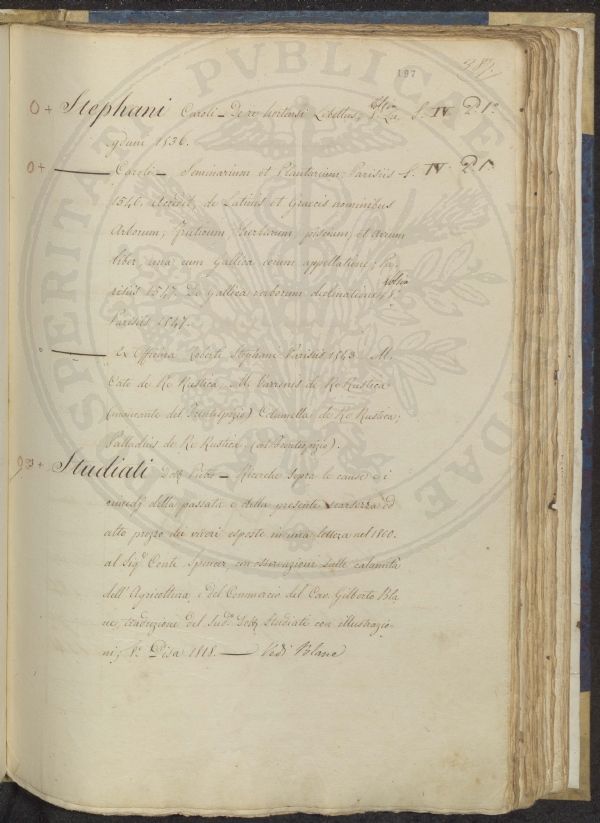 197
0+ Stephani Caroli _ De re hortensi Libellus, S. IV P. 1º
0+ ——— Caroli _ Seminarium et Plantarium, Parisiis IV P. 1º
1540. Accedit, de Latinis et Graecis nominibus
Arborum, fruticum, Herbarum, piscium, et Avium
liber, una cum Gallica eorum appellatione, Pa-
risiis 1547. De Gallica verborum declinatione,
Parisiis 1547.
——— Ex Officina Roberti Stephani Parisiis 1543. M.
Cato de Re Rustica, M. Varrones de Re Rustica
(mancante del Frontespizio) Columella, de Re Rustica,
Palladius de Re Rustica (col Frontespizio).
93+ Studiati Dott. Pietro _ Ricerche sopra le cause e i
rimedj della passata e della presente scarsezza ed
alto prezzo dei viveri esposte in una lettera nel 1800.
al Sigr. Conte Spencer con osservazioni sulle calamità
dell'Agricoltura e del Commercio del Cav. Gilberto Bla
ne, traduzione del Sudº. Dott. Studiati con illustrazio-
ni, 8º Pisa 1818. ——— Vedi Blane
PVBLICAE
PROSPERITATI